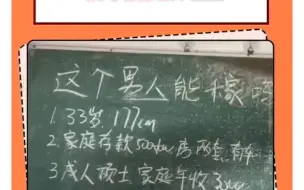 这个男人能嫁吗
1.33岁 177cm
2.家庭存款500w 房两套 有车
3.成人硕士 家庭年收